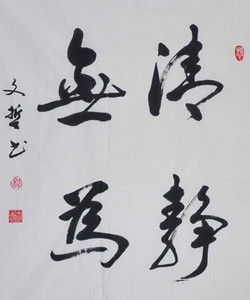 清静
無為
文哲书